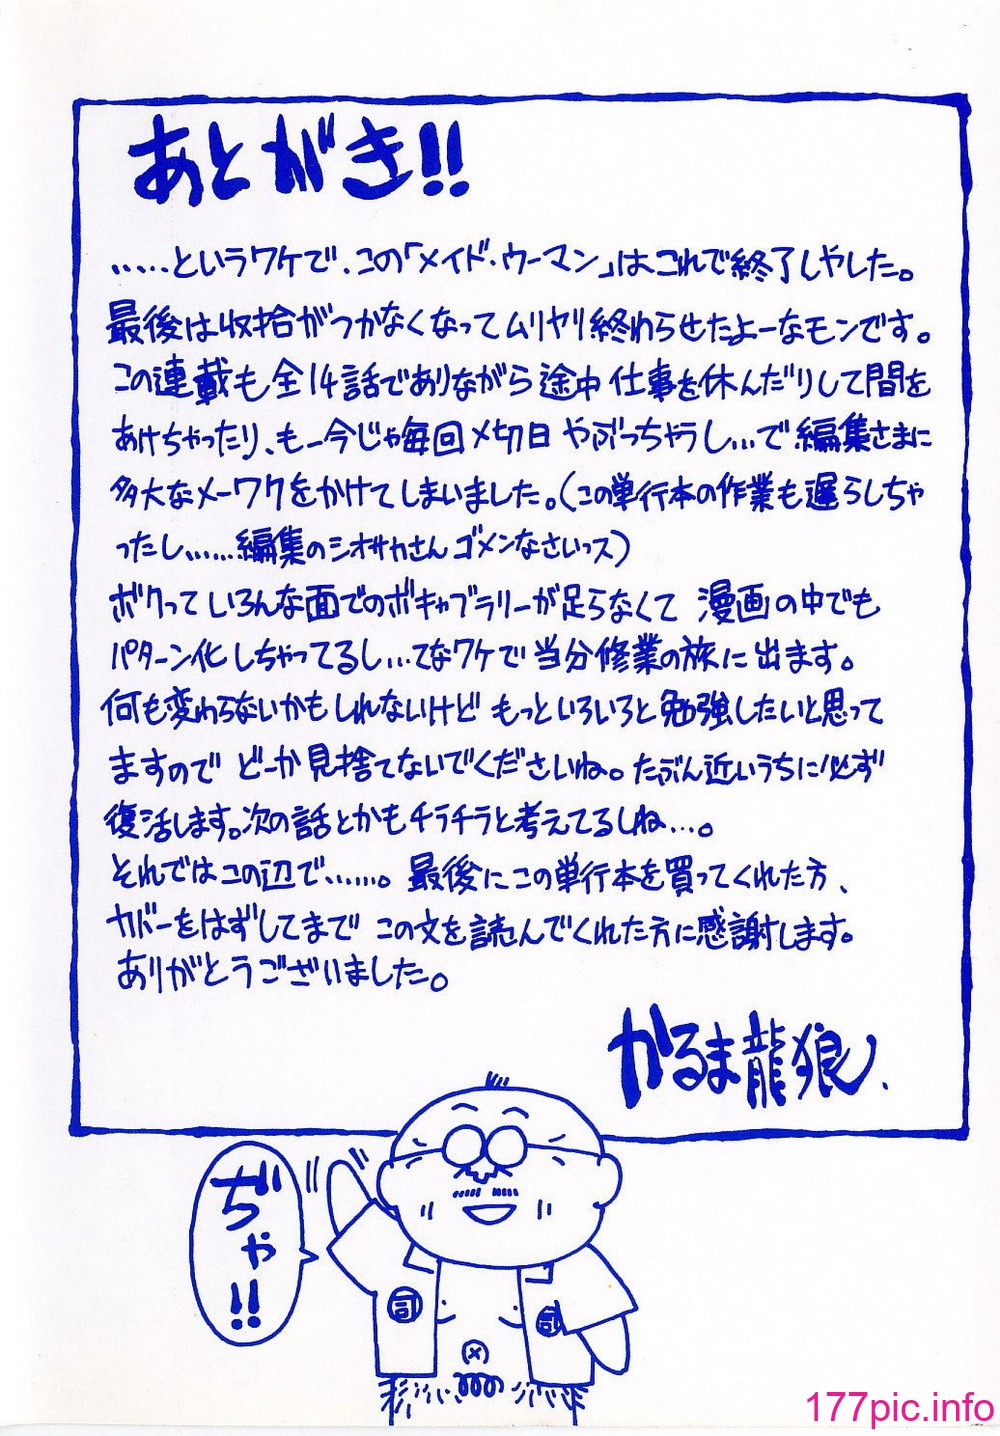 あとがき!!
……というワケで、この「メイド・ウーマン」は、これで終了しやした。
最後は収拾がつかなくなってムリヤリ終わらせたよーなモンです。
この連載も全14話でありながら途中仕事を休んだりして間を
あけちゃったり、もー今じゃ毎回〆切日やぶっちゃうし…で編集さまに
多大なメーワクをかけてしまいました。(この単行本の作業も遅らしちゃ
ったし、……編集のシオサカさんゴメンなさいっス)
ボクっていろんな面でのボキャブラリーが足らなくて 漫画の中でも
パターン化しちゃってるし…てなワケで当分修業の旅に出ます。
何も変わらないかもしれないけど もっといろいろと勉強したいと思って
ますので どーか見捨てないでくださいね。たぶん近いうちに必ず
復活します。次の話とかもチラチラと考えてるしね…。
それではこの辺で……。最後にこの単行本を買ってくれた方、
カバーをはずしてまで この文を読んでくれた方に感謝します。
ありがとうございました。
かるま龍狼.
ぢゃ!!
司
司
177pic.info